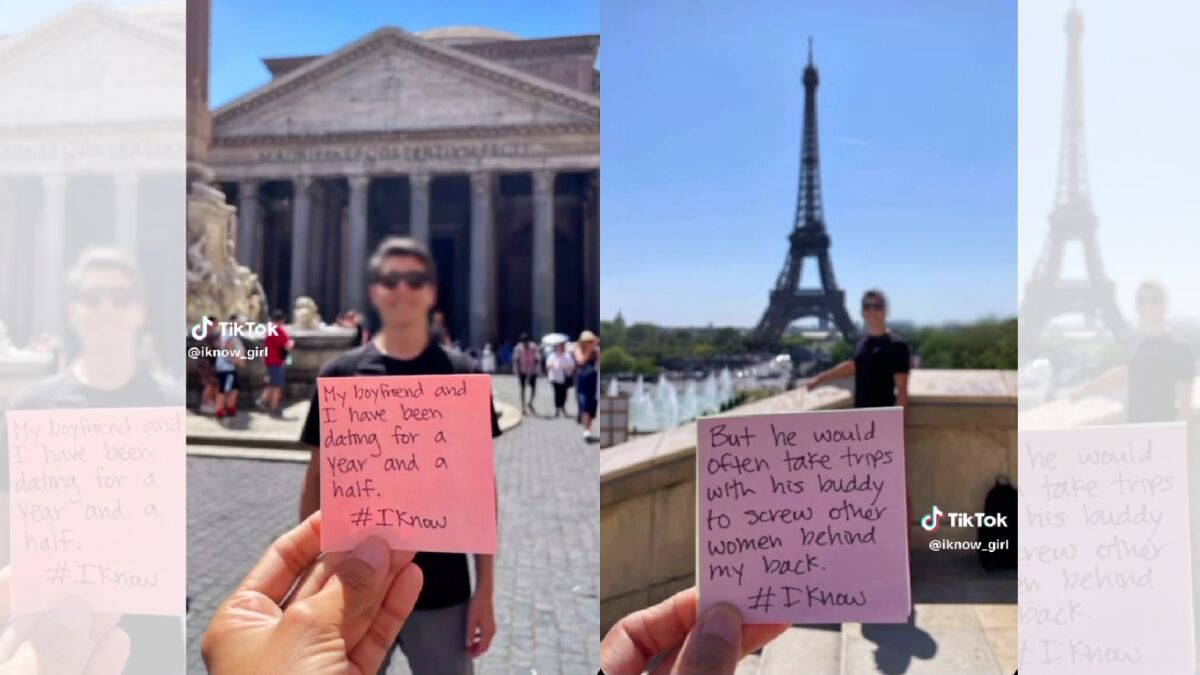 My boyfriend and
I have been
dating for a
year and a
half.
#IKnow
TikTok
@iknow_girl
But he would
often take trips
with his buddy
to screw other
women behind
my back.
#IKnow
TikTok
@iknow_girl
My boyfriend and
I have been
dating for a
year and a
half.
#IKnow
he would
take trips
his buddy
other
behind
back.
IKnow